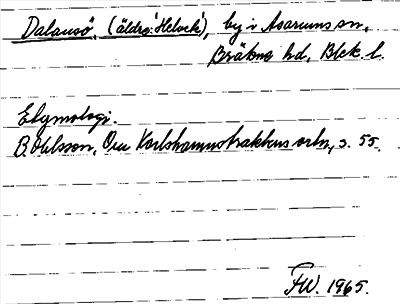 Dalansö, (äldre: Helvek), by i Asarums sn,
Bräkne hd, Blek. l.
Etymologi.
B. Ohlsson, Om Karlshamnstraktens ortn, s. 55.
FW. 1965.